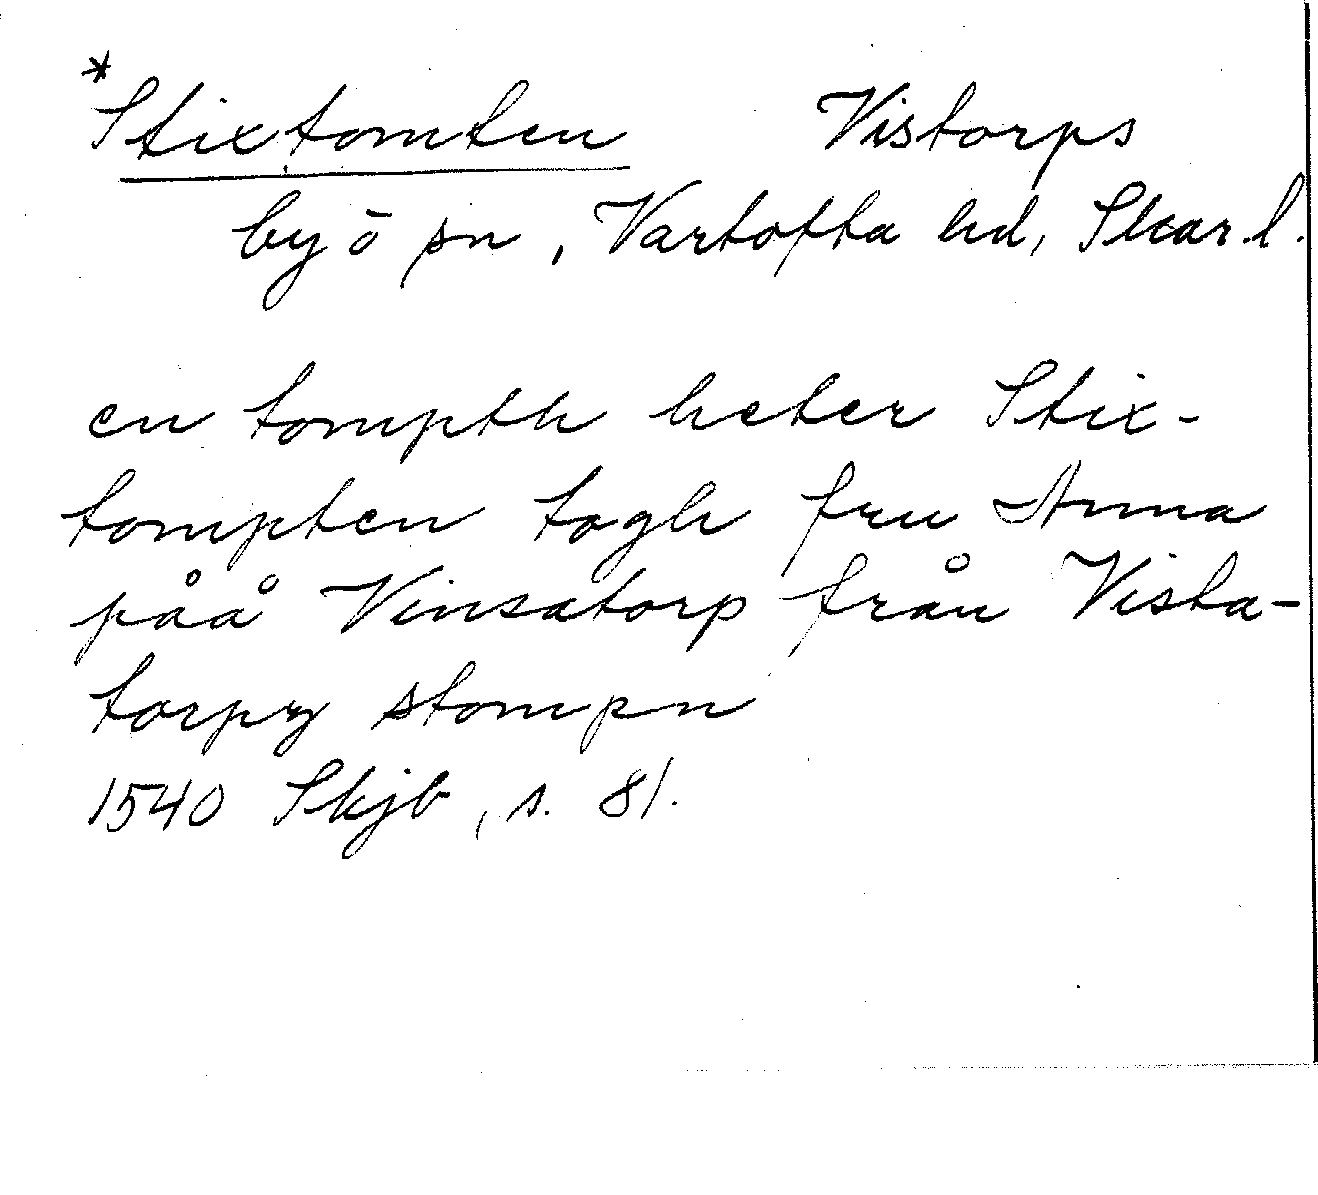 *Stixtomten Vistorps
by ō sn, Vartofta hd, Skar. l.
en tompth heter Stix-
tompten togh fru Anna
påå Vinsatorp från Vista-
torpz stompn
1540 Skjb, s. 81.